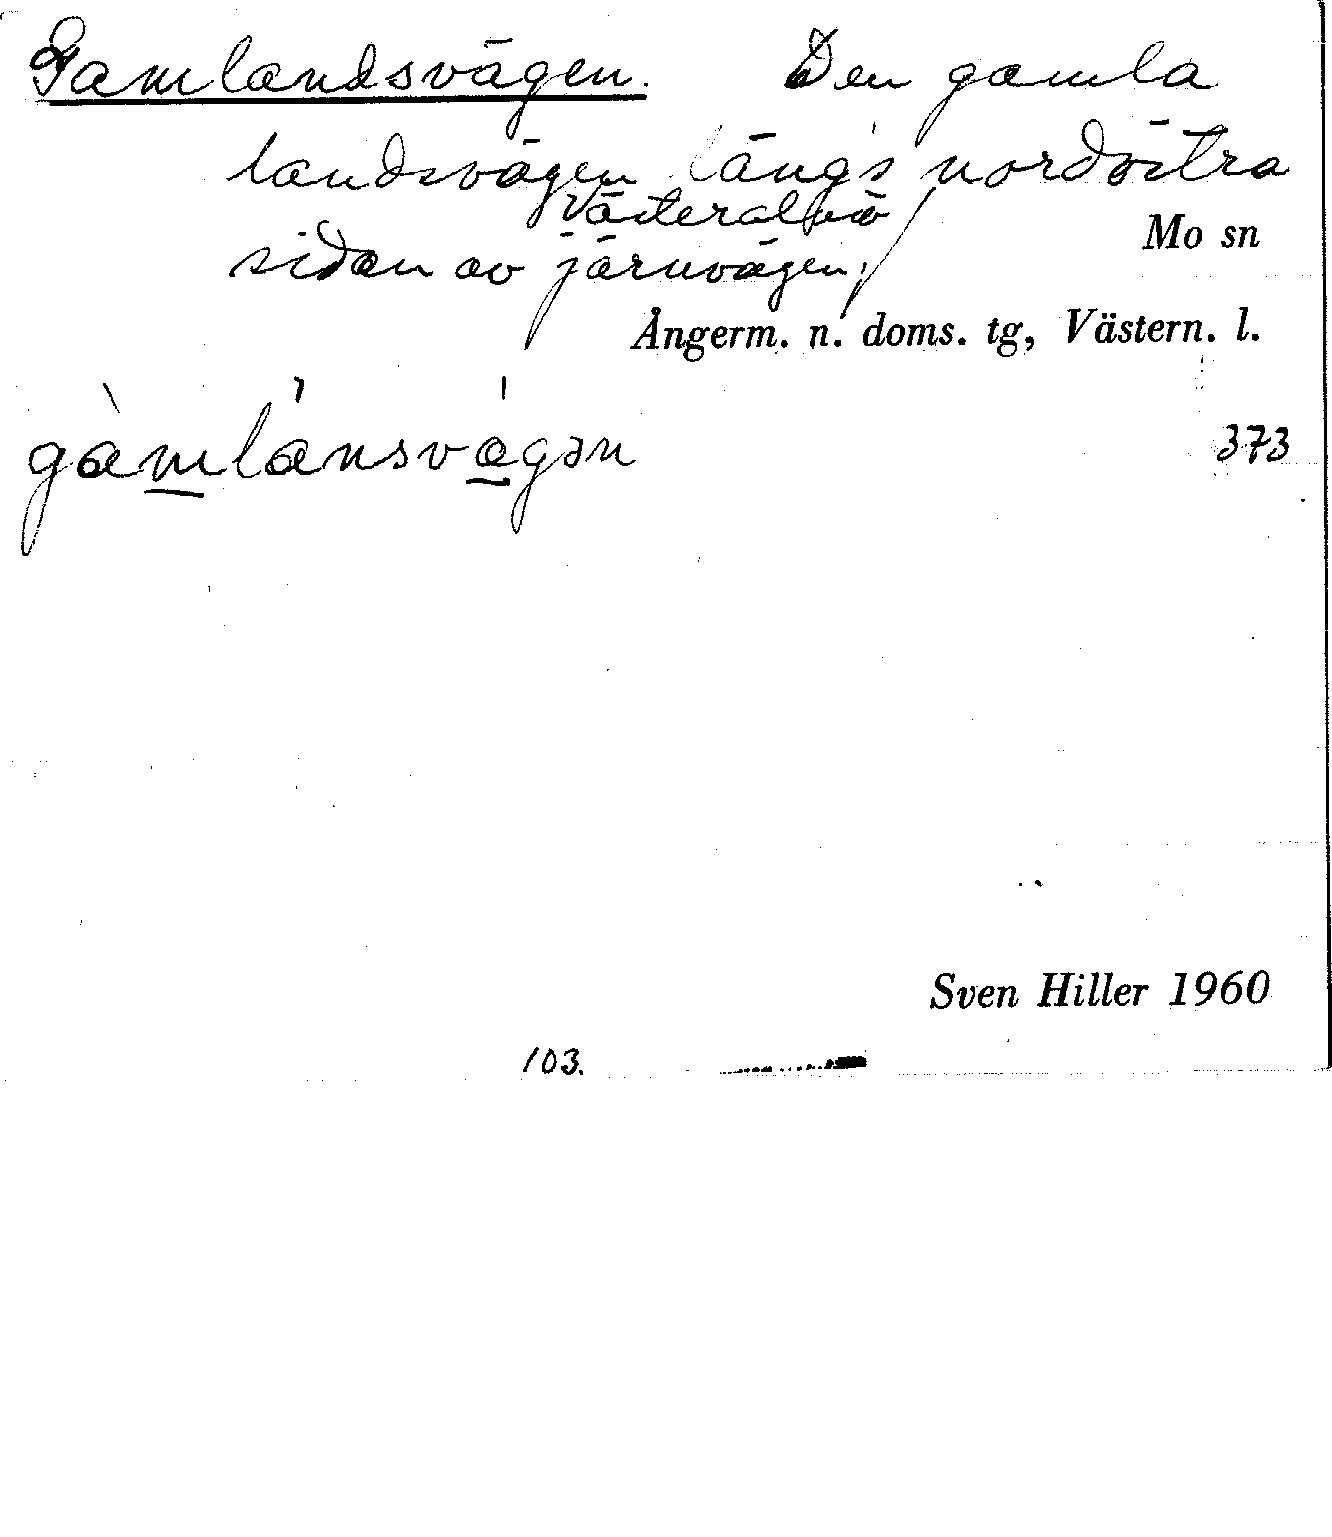 Gamlandsvägen. Den gamla
landsvägen längs nordöstra
Västeralnö
sidan av järnvägen.
Mo sn
Ångerm. n. doms. tg, Västern. l.
gàmlánsvágən
373
Sven Hiller 1960
103.